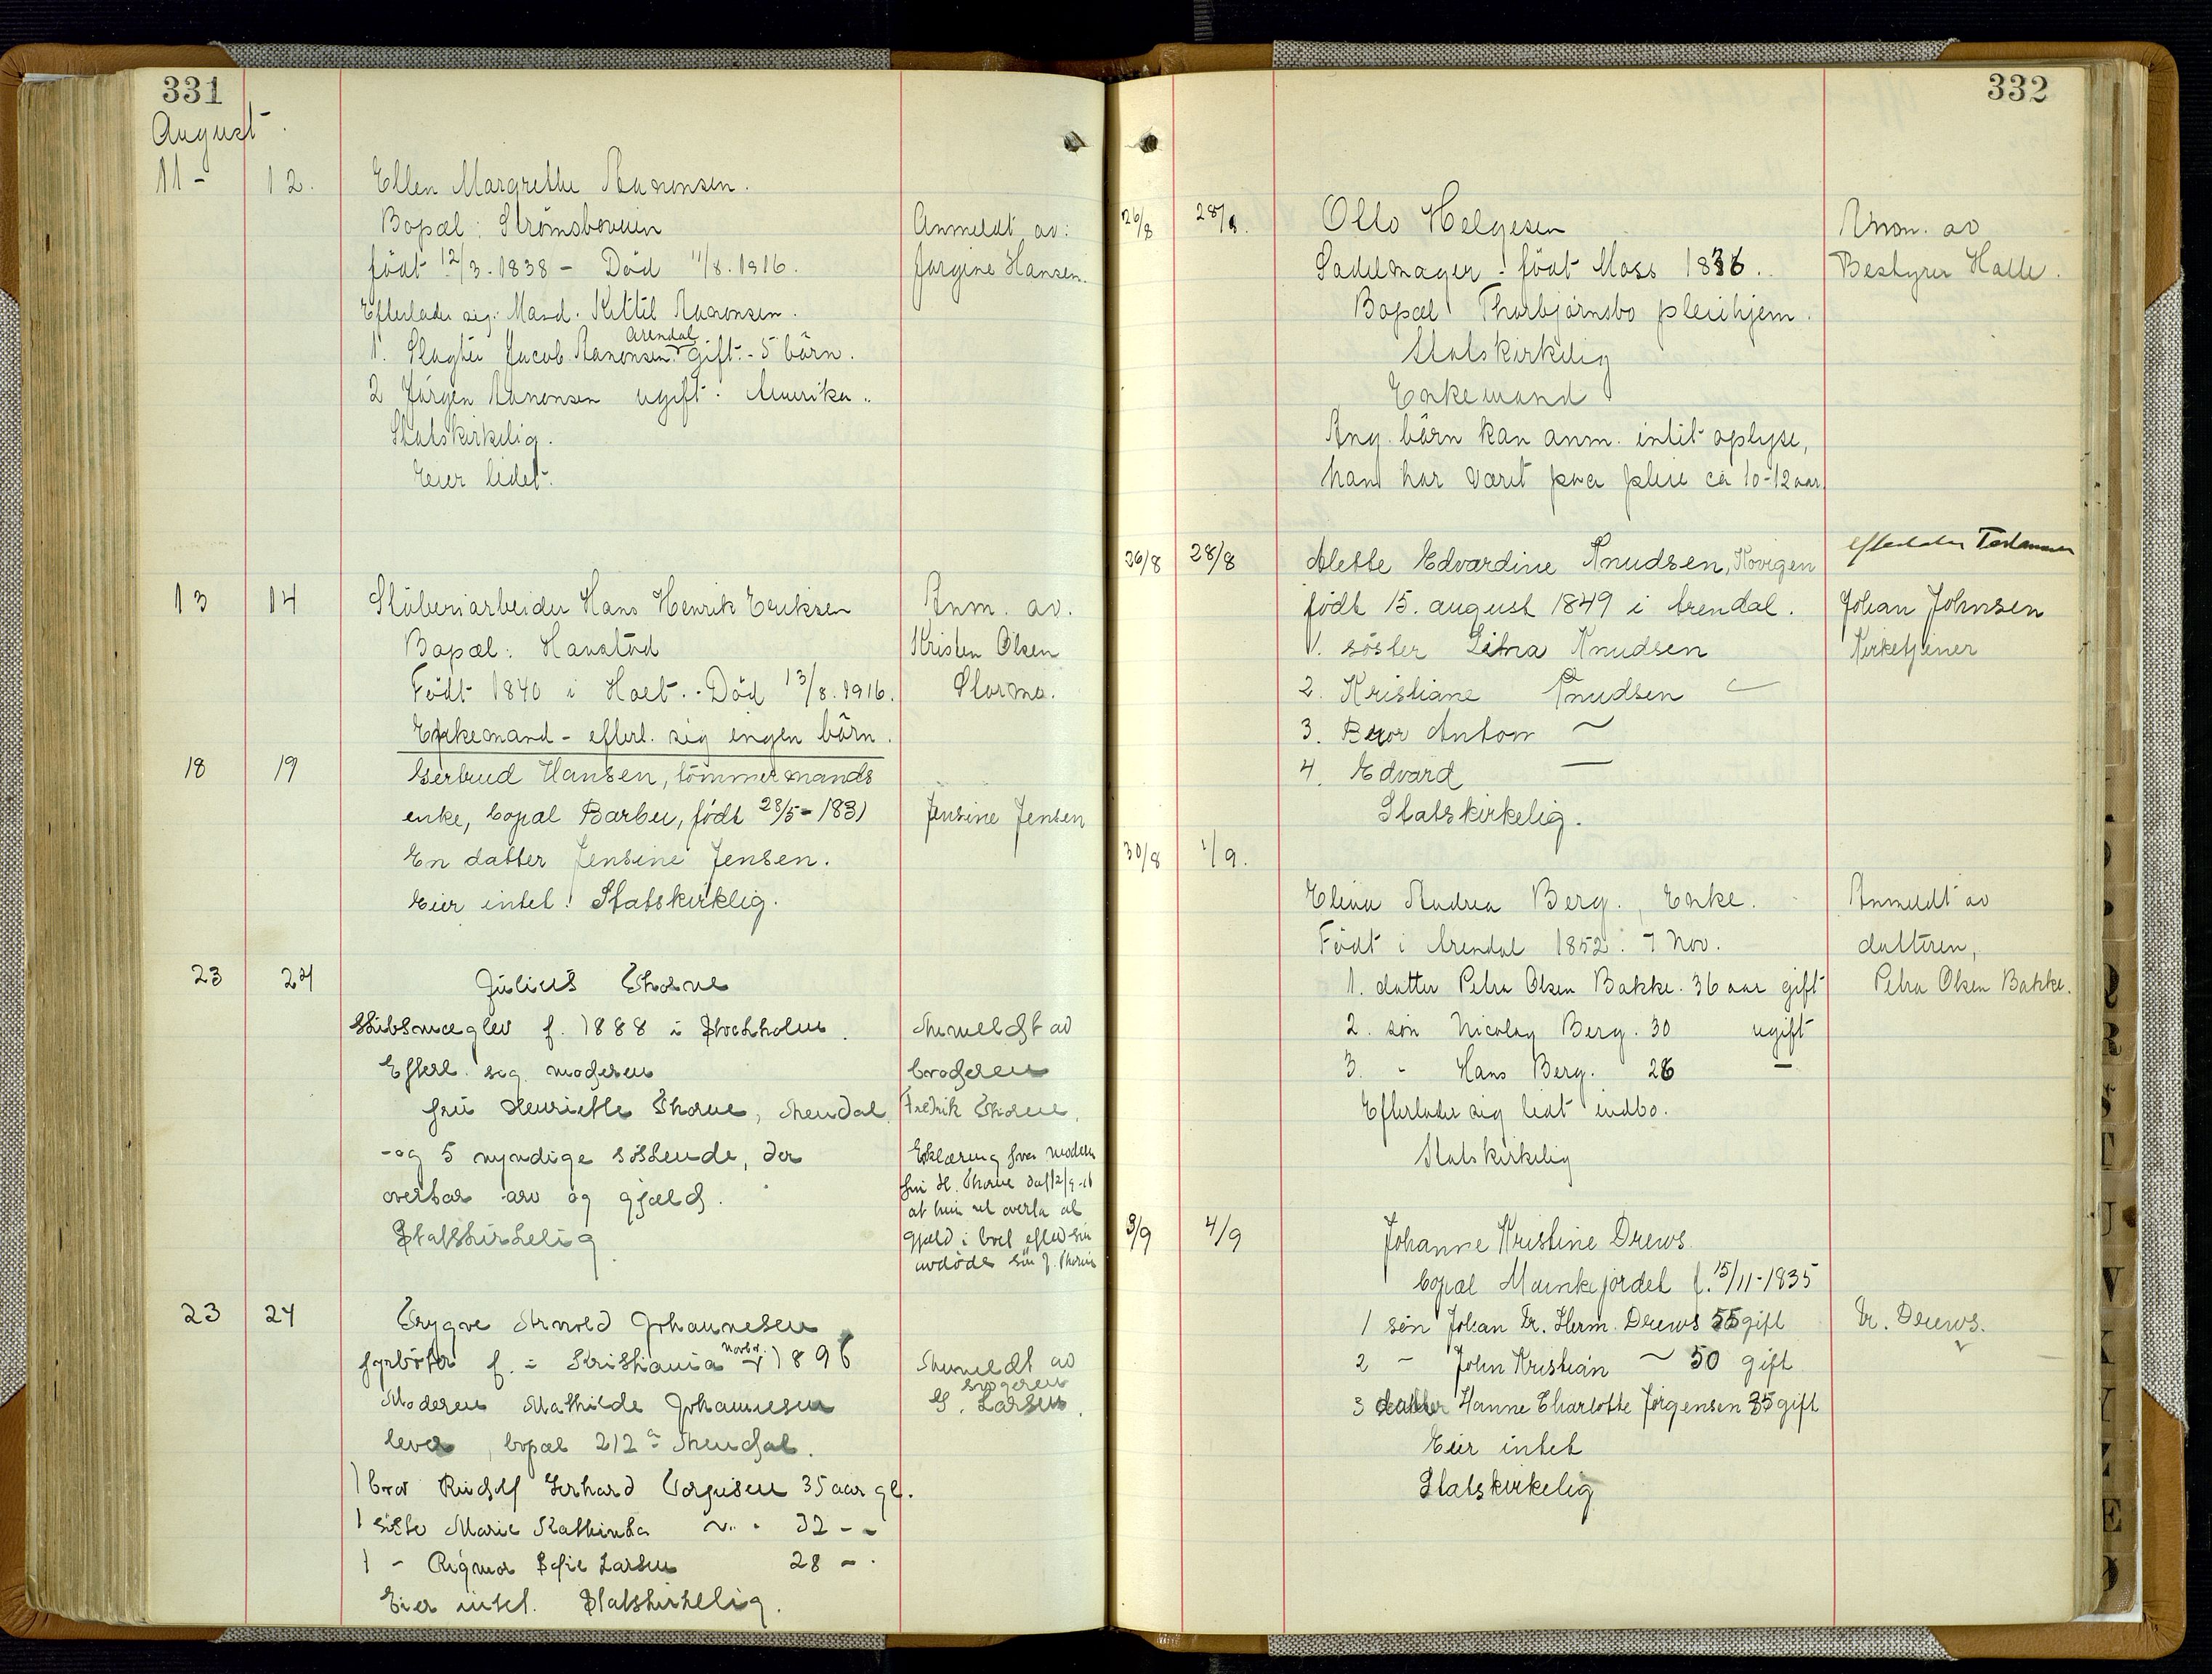 331
August
11 - 12. Ellen Margrethe Aanonsen.
Bopæl: Strömsboveien Anmeldt av:
födt 12/3. 1838 - Död 11/8. 1916. Jørgine Hansen.
Efterlader sig: Mand. Kittil Aanonsen.
Arendal
1. Slagter Jacob Aanonsen. gift. - 5 börn.
2 Jörgen Aanonsen ugift. Amerika.
Statskirkelig.
Eier lidet.
13 14 Støberiarbeider Hans Henrik Eriksen Anm. av.
Bopæl: Havstad Kristen Olsen
Födt 1840 i Holt. Död 13/8. 1916. Storma.
Enkemand - efterl. sig ingen börn.
18 19 Gertrud Hansen, tömmermands
enke, bopæl Barbu, födt 28/5 - 1831 Jensine Jensen
En datter Jensine Jensen.
Eier intet. Statskirklig.
23 24 Julius Thorne
skibsmægler f. 1888 i Stockholm. Anmeldt av
Efterl. sig moderen broderen
fru Henriette Thorne, Arendal Fredrik Thorne.
- og 5 myndige söskende, der
overtar arv og gjæld.
Statskirkelig
Erklæring fra moderen
fru H. Thorne dat 12/9-16
at hun vil overta al
gjæld i boet efter sin
avdöde sön J. Thorne
23 24 Trygve Arnold Johannesen
novbr.
fyrböter f. i Kristiania 1896 Anmeldt av
svogeren
Moderen Mathilde Johannesen G. Larsen.
lever, bopæl 212a Arendal.
1 bror Rudolf Gerhard 35 aar gl.
1 söster Marie Kathinka ~ 32 - -
1 - Rigmor Sofie Larsen 28 - .
Eier intet. Statskirkelig.
332
26/8 28/8. Otto Helgesen Anm. av
Sadelmager - födt Moss 1836. Bestyrer Halle.
Bopæl Thorbjörnsbo pleiehjem.
Statskirkelig
Enkemand
Ang. börn kan anm. intet oplyse,
han har været paa pleie ca 10-12 aar.
efterlader Testamen
26/8 28/8 Alette Edvardine Knudsen, Kovigen
födt 15. august 1849 i Arendal. Johan Johnsen
1. söster Lina Knudsen Kirketjener
2. Kristiane Knudsen
3. Bror Anton ~
4. Edvard —
Statskirkelig.
30/8 1/9.
Eline Andrea Berg., Enke. Anmeldt av
Födt i Arendal 1852. 7 Nov. datteren,
1. datter Petra Olsen Bakke. 36 aar gift Petra Olsen Bakke.
2. sön Nicolay Berg. 30 ugift
3. - Hans Berg. 26 —
Efterlader sig lidt indbo.
Statskirkelig
3/9 4/9 Johanne Kristine Drews.
bopæl Munkejordet f. 15/11-1835
1 sön Johan Fr. Herm. Drews 55 gift Fr. Drews.
2 - John Kristian ~ 50 gift
3 datter Hanne Charlotte Jørgensen 35 gift
Eier intet
Statskirkelig